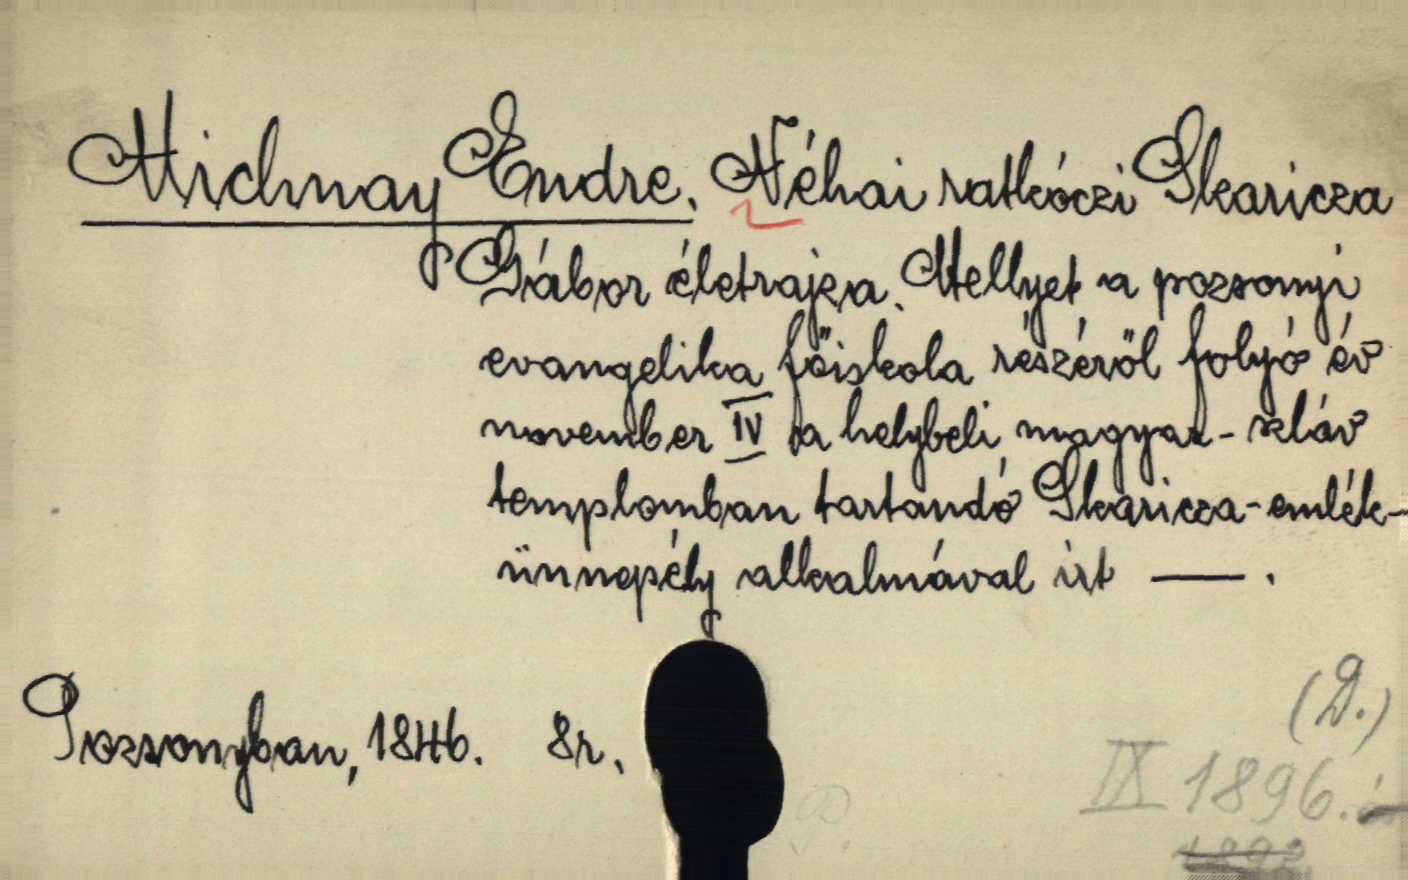 Michnay Endre. Néhai ratkóczi Skaricza
Gábor életrajza. Mellyet a pozsonyi
evangelika főiskola részéről folyó év
november IV a helybeli magyar-szláv
templomban tartandó Skaricza-emlék-
ünnepély alkalmával irt — .
Pozsonyban, 1846. 8r.
(D.)
IX 1896.